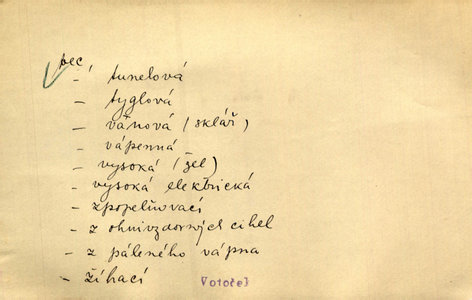 pec
- tunelová
- tyglová
- vanová (sklář)
- vápenná
- vysoká (žel)
- vysoká elektrická
- zpopelňovací
- z ohnivzdorných cihel
- z páleného vápna
- žíhací
Votoček